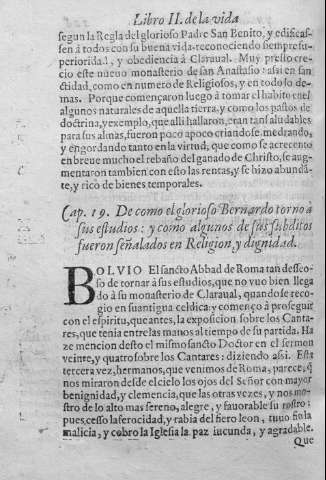 Libro II. de la vida
segun la Regla del glorioso Padre San Benito, y edificas-
sen à todos con su buena vida: reconociendo siempre su pe-
rioridad, y obediencia à Claraual. Muy presto cre-
cio este nueuo monasterio de san Anastasio: assi en san-
ctidad, como en numero de Religiosos, y en todo lo de-
mas. Porque començaron luego à tomar el habito en el,
algunos naturales de aquella tierra, y como los pastos de
doctrina, y exemplo, que alli hallaron, eran tan saludables
para sus almas, fueron poco apoco criandose, medrando,
y engordando tanto en la virtud, que como se acrecento
en breue mucho el rebaño del ganado de Christo, se aug-
mentaron tambien con esto las rentas, y se hizo abunda-
te, y rico de bienes temporales.
Cap. 19. De como el glorioso Bernardo torno à
sus estudios: y como algunos de sus subditos
fueron señalados en Religion, y dignidad.
BOLVIO El sancto Abbad de Roma tan desseo-
so de tornar à sus estudios, que no vuo bien llega
do à su monasterio de Claraual, quando se reco-
gio en su antigua celdica: y començò à proseguir
con el espiritu, que antes, la exposicion sobre los Canta-
res, que tenia entre las manos al tiempo de su partida. Ha
ze mencion desto el mismo sancto Doctor en el sermon
veinte, y quatro sobre los Cantares: diziendo assi. Esta
tercera vez, hermanos, que venimos de Roma, parece, q̃
nos miraron desde el cielo los ojos del Señor con mayor
benignidad, y clemencia, que las otras vezes, y nos mo-
stro de lo alto mas sereno, alegre, y fauorable su rostro:
pues, cesso la ferocidad, y rabia del fiero leon, tuuo fin la
malicia, y cobro la Iglesia la paz iucunda, y agradable.
Que